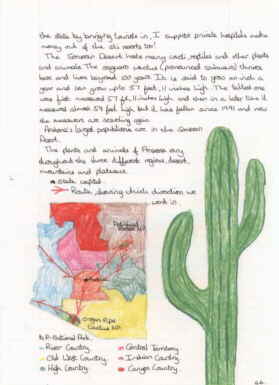 the state by bringing tourists in, I suppose private hospitals make
money out of the ski resorts too!
The Sonoran Desert holds many cacti, reptiles and other plants
and animals. The saguaro cactus (pronounced sahwaro) thrives
here and lives beyond 100 years. It is said to grow an inch a
year and can grow upto 57 feet, 11 inches high. The tallest one
was first measured 57 ft, 11 inches high and then in a later time it
measured almost 59 feet high but it has fallen since 1991 and now
the measurers are searching again.
Arizona's largest populations are in the Sonoran
Desert.
The plants and animals of Arizona vary
throughout the three different regions, desert,
mountains and plateaux.
★ State capital.
Route, showing which direction we
work in.
Organ Pipe
Cactus N.P.
N.P. National Park.
River Country
Old West Country
High Country
Central Territory
Indian Country
Canyon Country